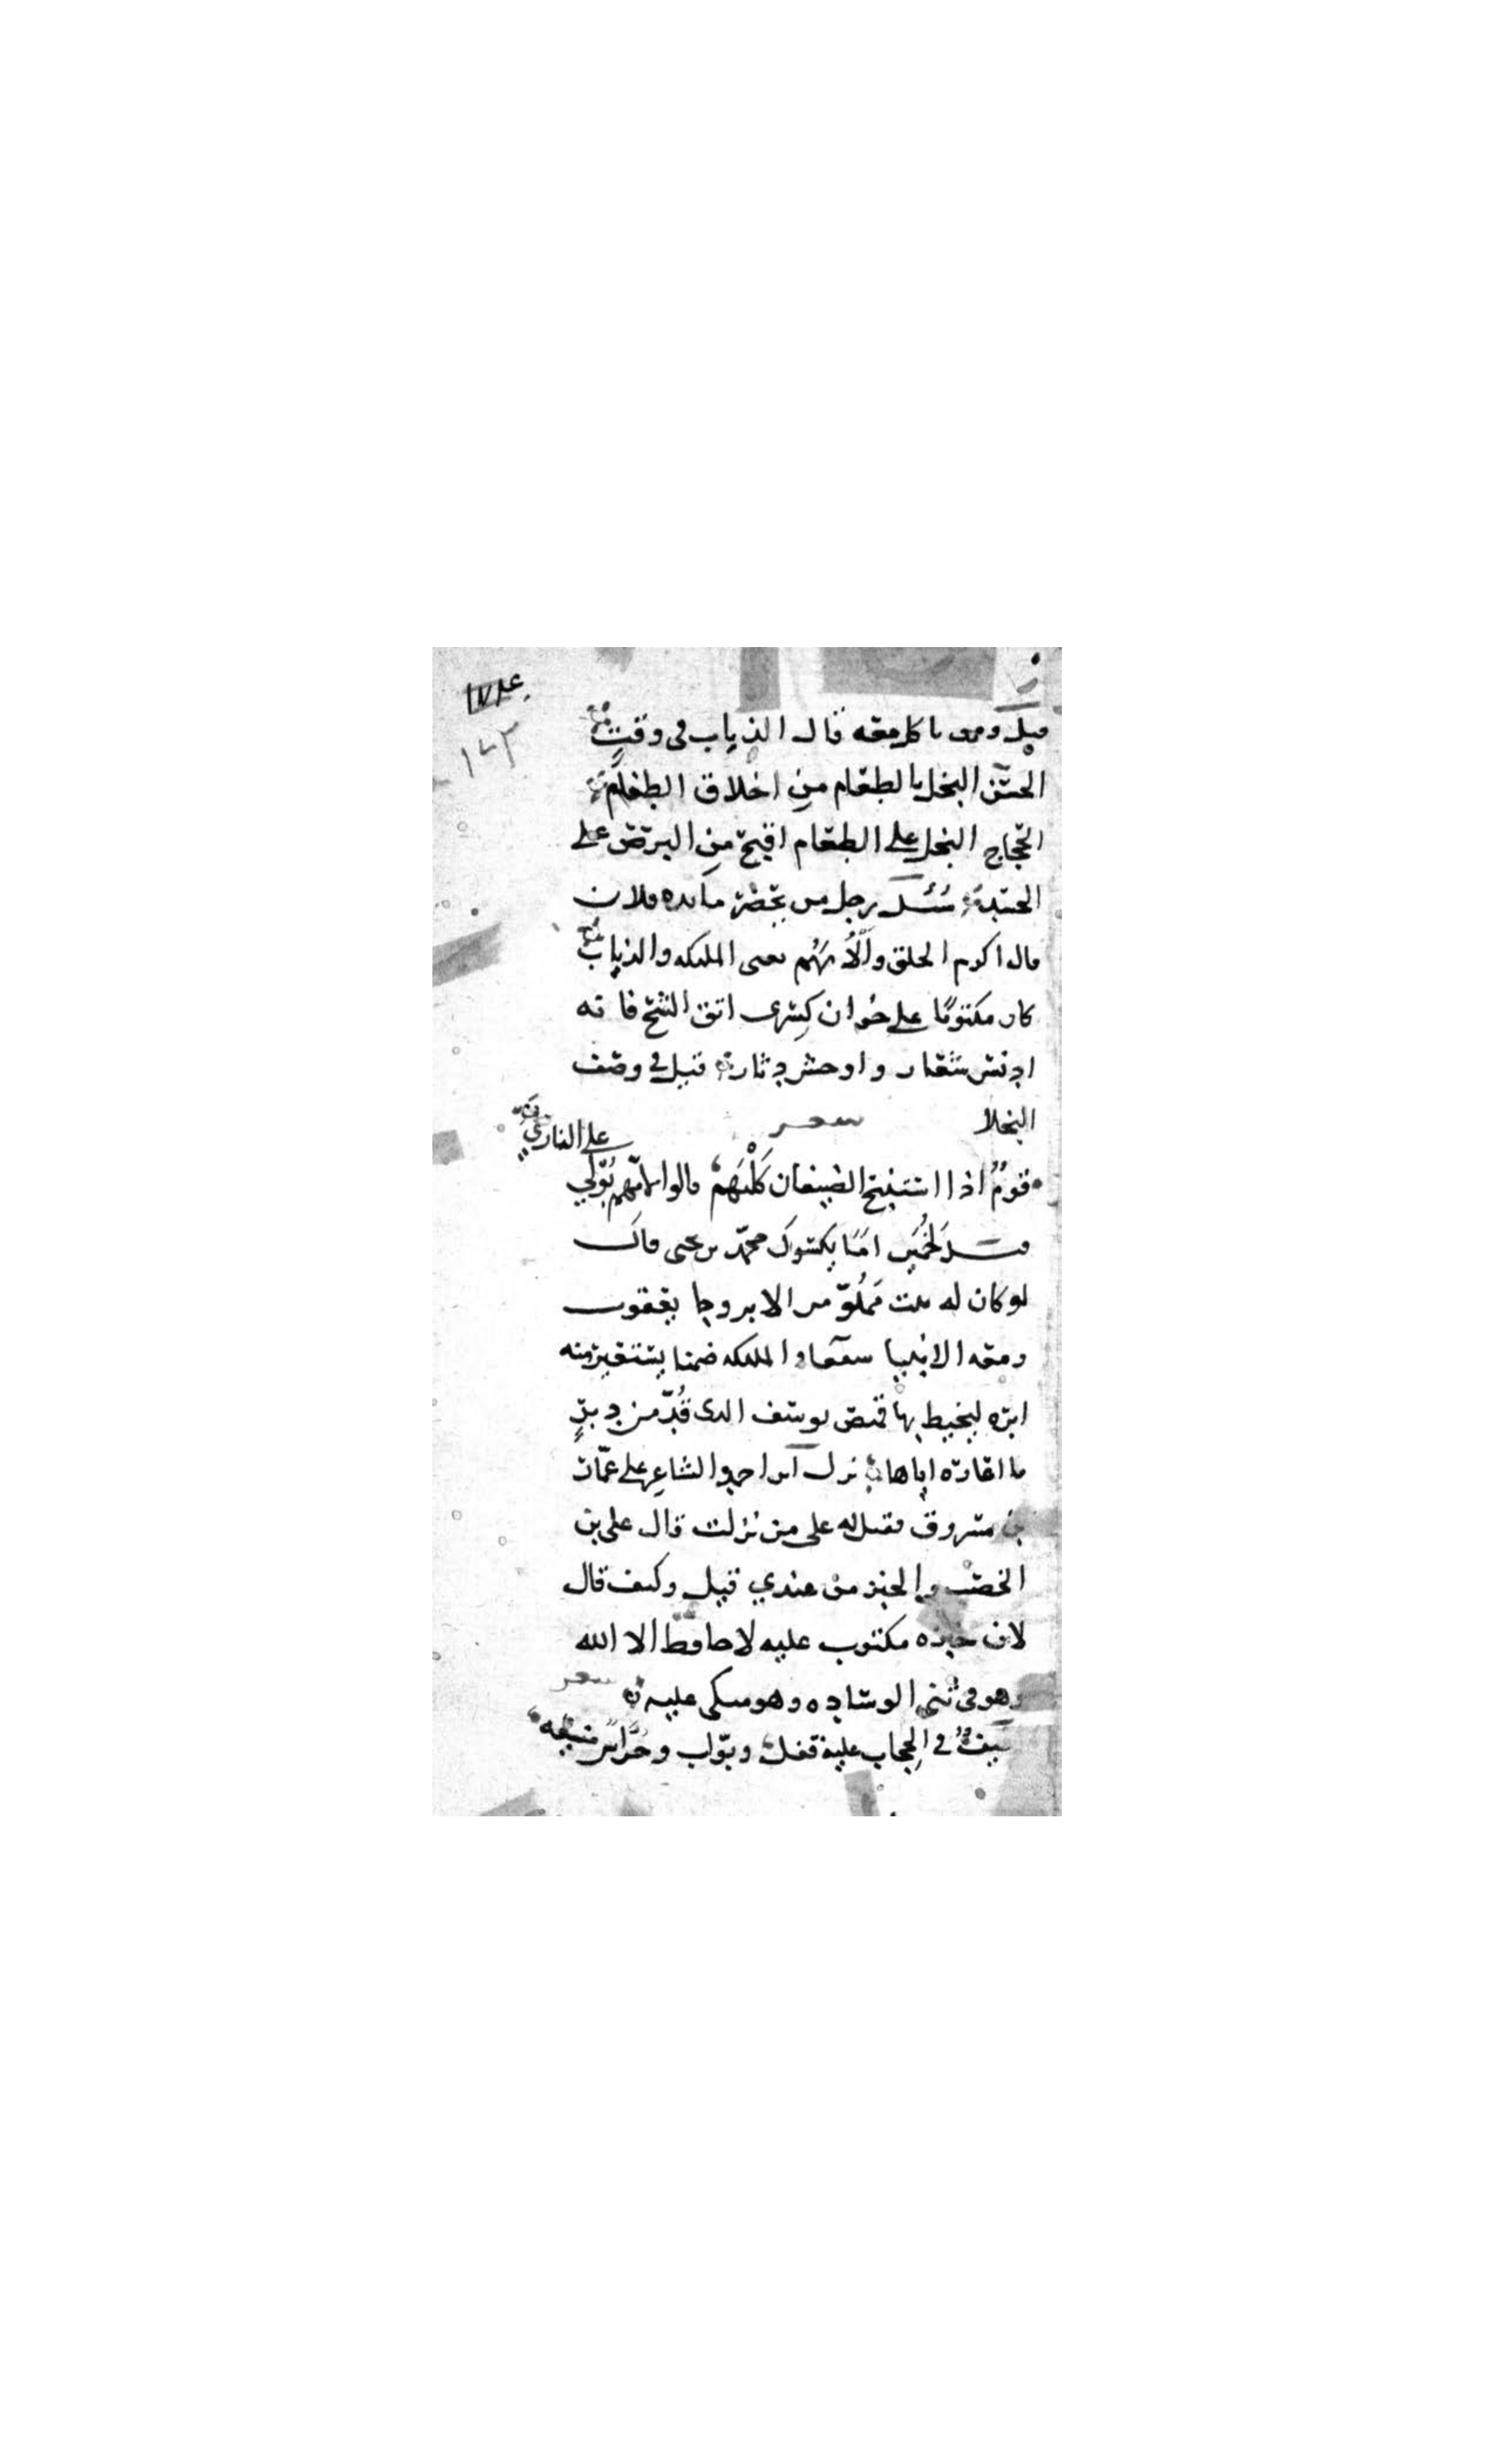 ١٤٢
قيل ومن ياكل معه قال الذباب في وقت
الحسن البخل بالطعام من اخلاق الطغام
الحجاج البخل على الطعام اقبح من البرص على
الجسد سئل رجل من يحضر مائده فلان
قال اكرم الخلق وألأمهم يعنى الملئكه والذباب
كان مكتوبا على خوان كسرى اتق الشح فانه
ادنس شعار واوحش دثار قيل في وصف
البخلا شعر
قوم اذا استنبح الضيفان كلبهم قالوا لامهم بولي على النار
قيل لخمير اما يكسوك محمد بن يحيى قال
لو كان له بيت مملو من الابر وجا يعقوب
ومعه الانبيا شفعا والملئكه ضمنا يستعير منه
ابره ليخيط بها قميص يوسف الذى قد من دبر
ما اعاره اياها نزل احمد الشاعر على عمار
بن مسروق فقيل له على من نزلت قال على بن
الخصيب والخبز من عندي قيل وكيف قال
لان خبزه مكتوب عليه لا حافظ الا الله
وهو في ثني الوساده وهو متكى عليه شعر
في الحجاب عليه قفل وبواب وحراس منيعه